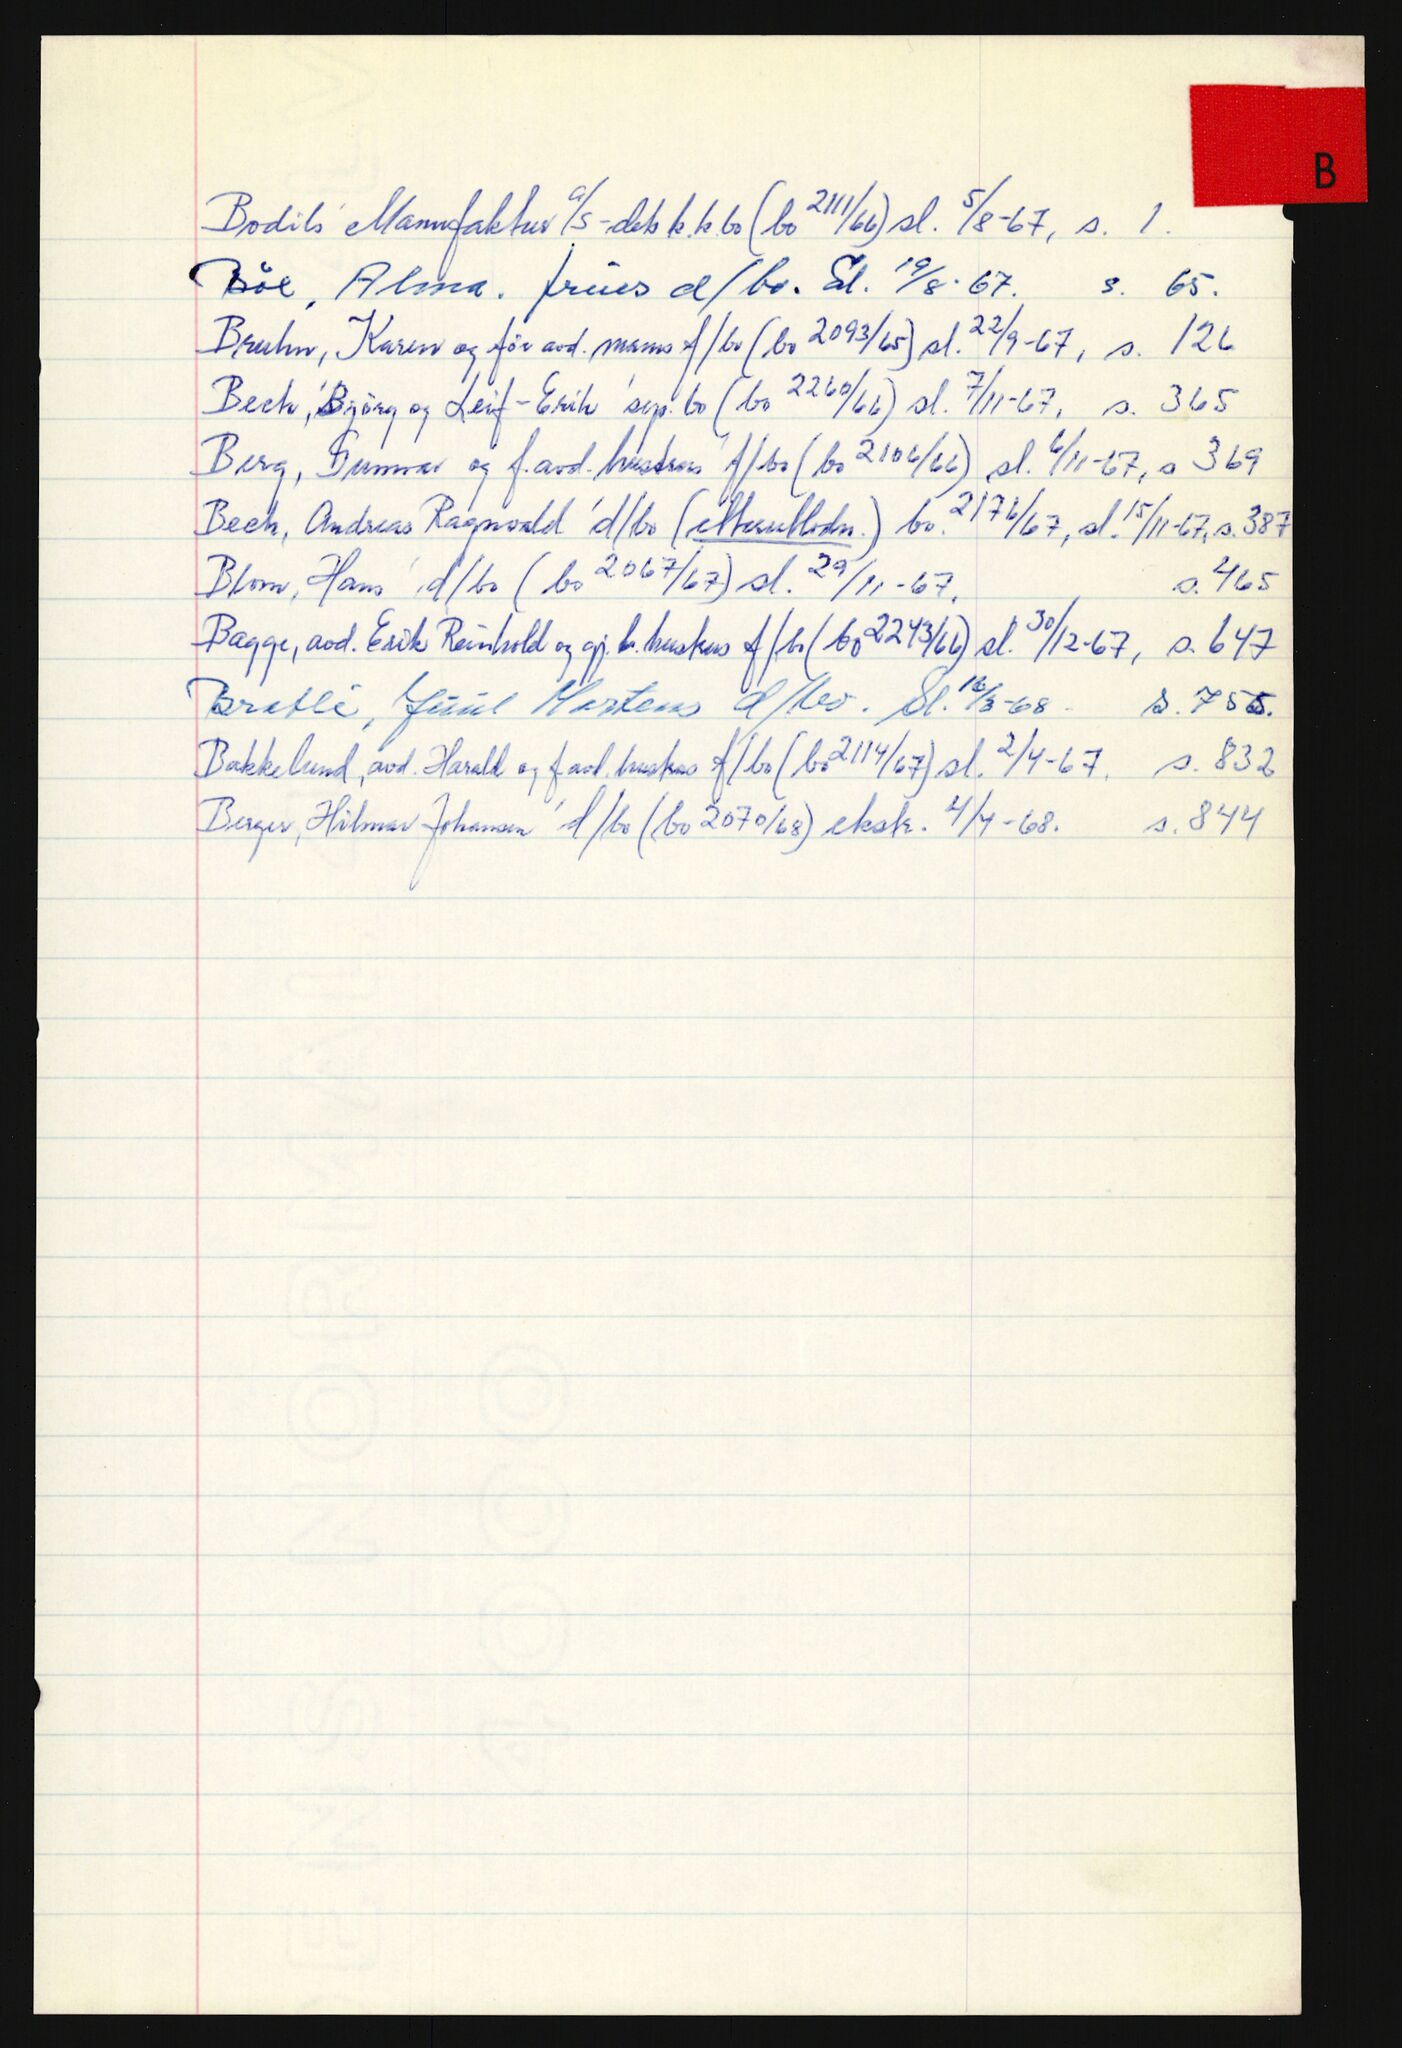 B
Bodils' Manufaktur A/S - dets k.k.bo (bo 2111/66) sl. 5/8-67, s. 1.
Böe, Alma. frues d/bo. Sl. 19/8-67. s. 65.
Bruhn, Karen og för avd. manns f/bo (bo 2093/65) sl. 22/9-67, s. 126
Bech, Björg og Leif-Erik' sep. bo (bo 2260/66) sl. 7/11-67, s. 365
Berg, Gunnar og f. avd. hustrus f/bo (bo 2106/66) sl. 6/11-67, s 369
Bech, Andreas Ragnvald' d/bo (etterutlodn.) bo. 2176/67, sl. 15/11-67, s. 387
Blom, Hans' d/bo (bo 2067/67) sl. 29/11-67. s. 465
Bagge, avd. Erik Reinhold og gj.l. hustrus f/bo (bo 2243/66) sl. 30/12-67, s. 647
Bratlé, Juul Martens d/bo. Sl. 16/3-68 s. 755.
Bakkelund, avd. Harald og f. avd. hustrus f/bo (bo 2114/67) sl. 2/4-67, s. 832
Berger, Hilmar Johansen' d/bo (bo 2070/68) ekstr. 4/4-68. s. 844